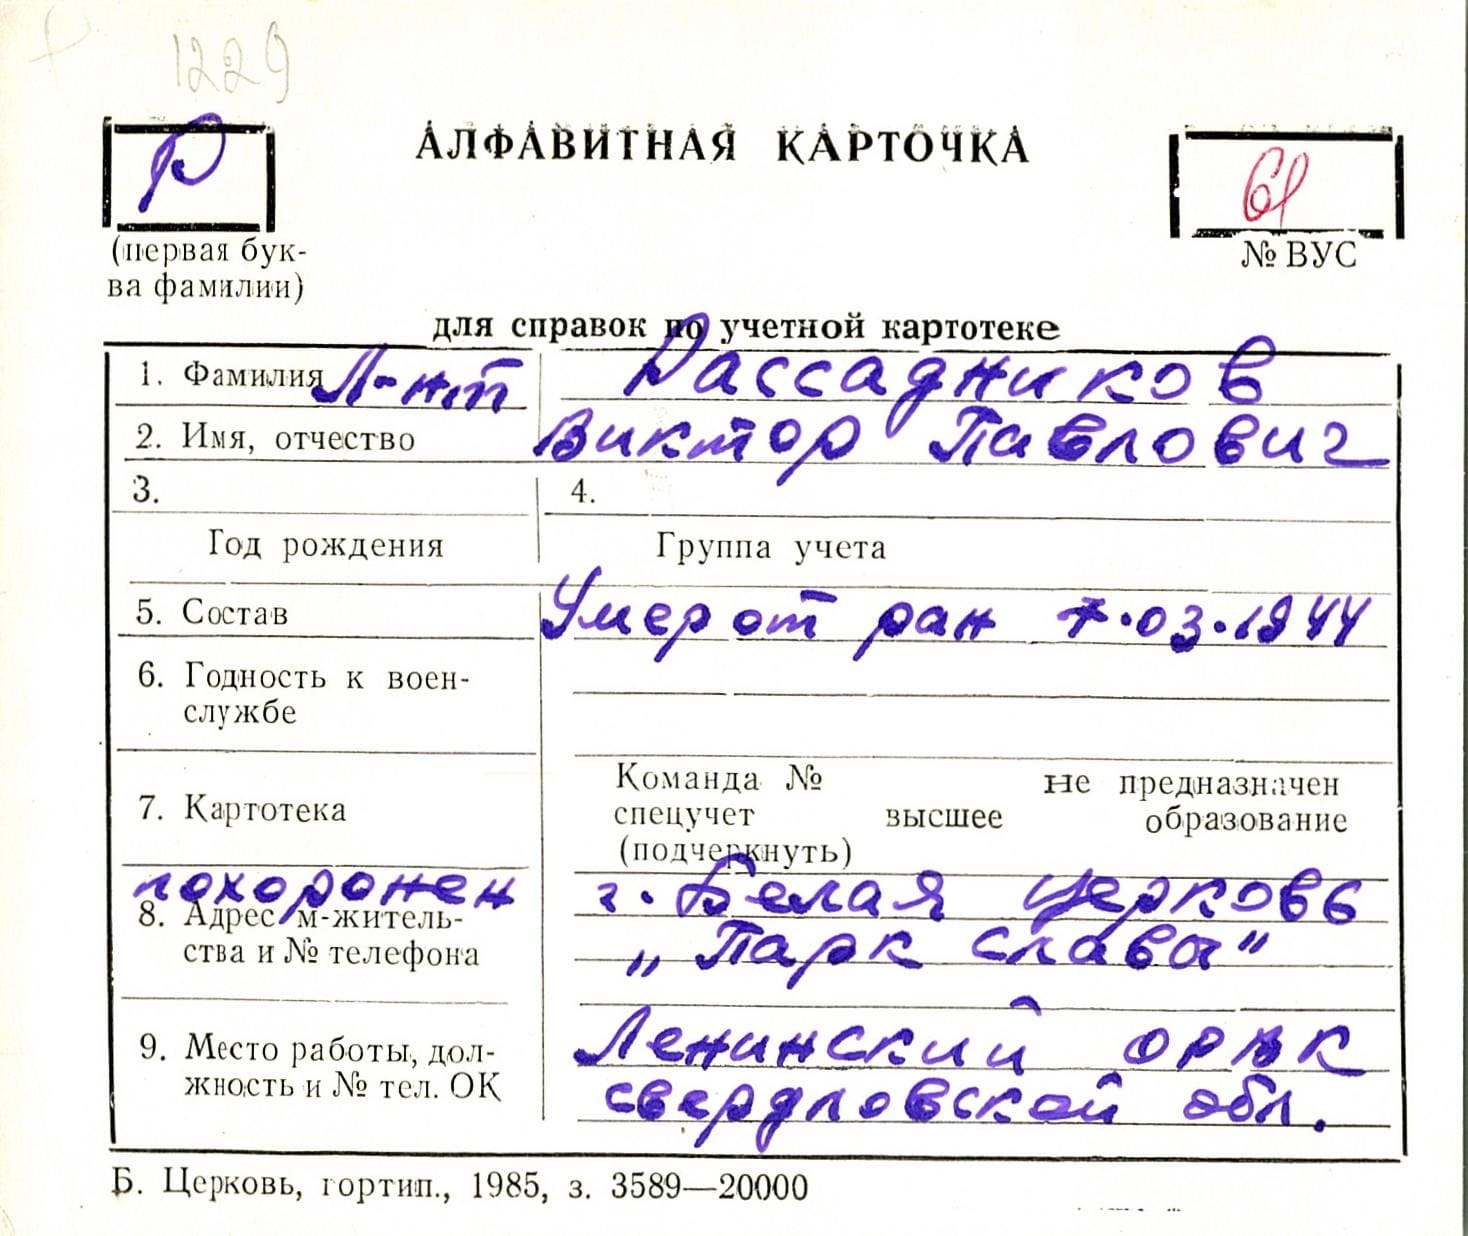 1229
Р
АЛФАВИТНАЯ КАРТОЧКА
61
(первая бук-
ва фамилии)
№ ВУС
для справок по учетной картотеке
1. Фамилия Л-нт Рассадников
2. Имя, отчество Виктор Павлович
3. 4.
Год рождения Группа учета
5. Состав Умер от ран 7.03.1944
6. Годность к воен-
службе
7. Картотека
Команда № не предназначен
спецучет высшее образование
(подчеркнуть)
похоронен г. Белая Церковь
8. Адрес м-житель-
ства и № телефона
„Парк Славы"
9. Место работы, дол-
жность и № тел. ОК
Ленинский ОРВК
Свердловской обл.
Б. Церковь, гортип., 1985, з. 3589—20000